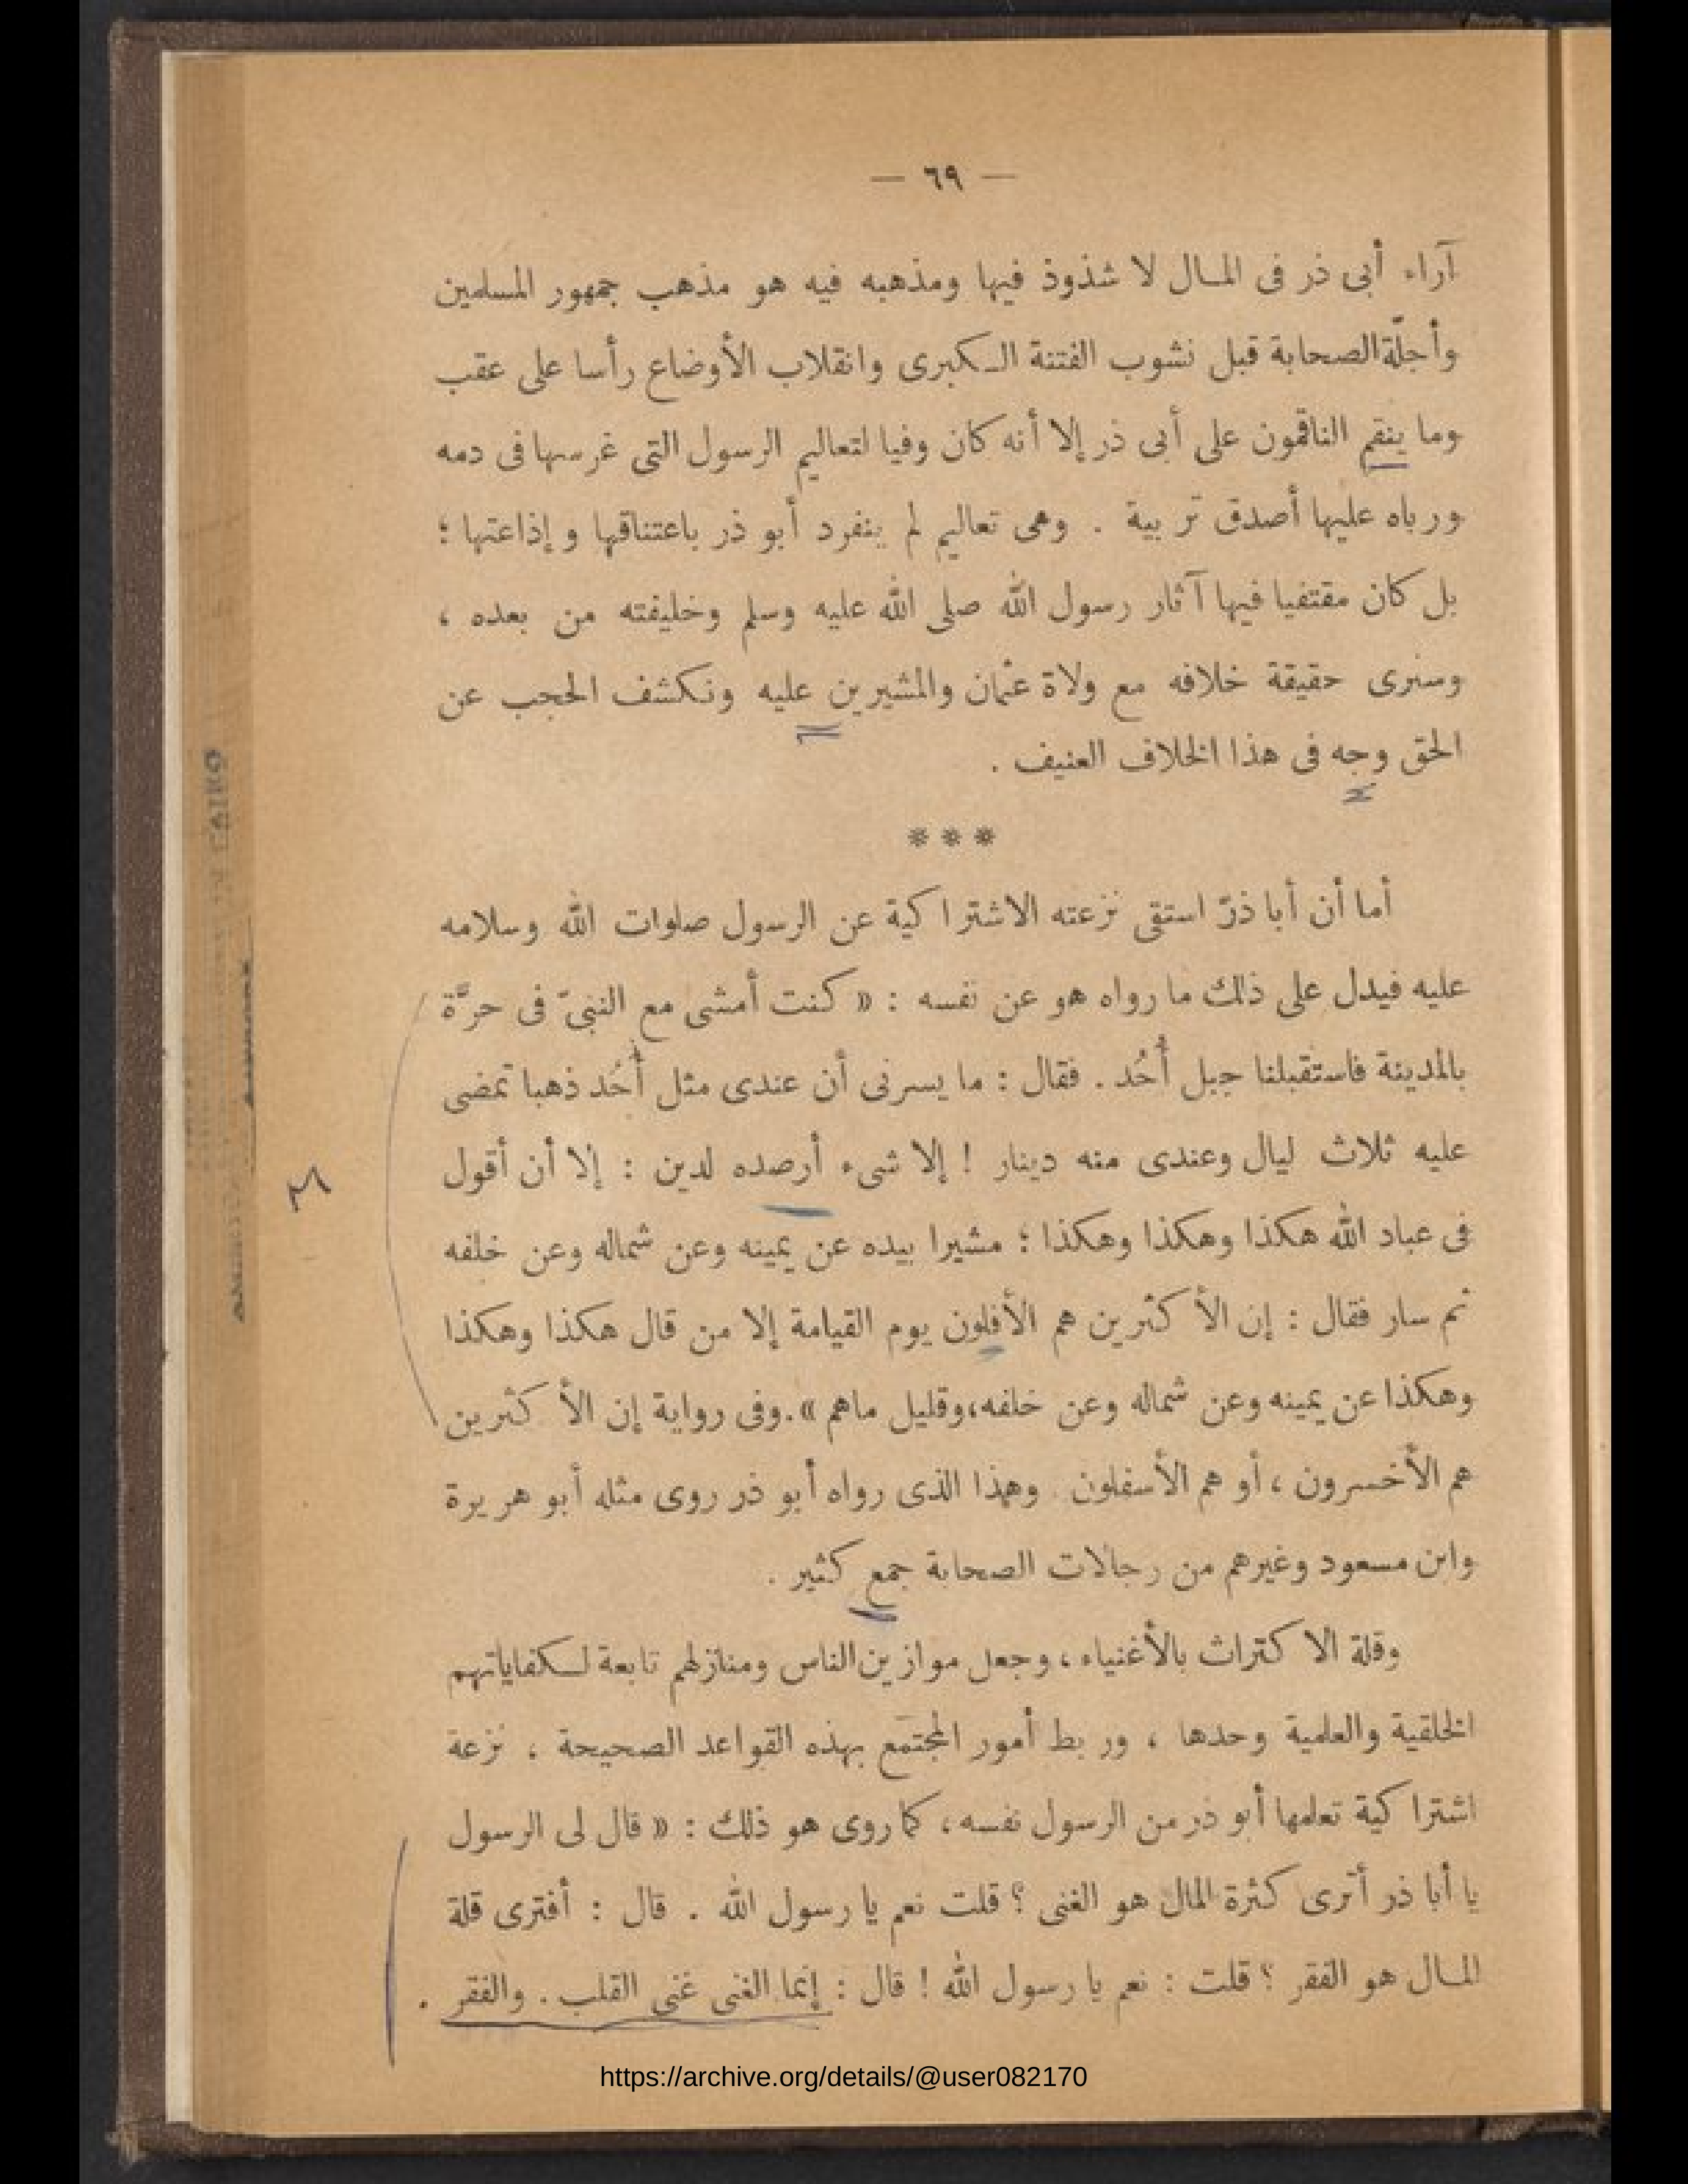 — ٦٩ —
آراء أبى ذر فى المـال لا شذوذ فيها ومذهبه فيه هو مذهب جمهور المسلمين
وأجلّة الصحابة قبل نشوب الفتنة الـكبرى وانقلاب الأوضاع رأسا على عقب
وما ينقم الناقمون على أبى ذر إلا أنه كان وفيا لتعاليم الرسول التى غرسها فى دمه
ورباه عليها أصدق تربية . وهى تعاليم لم ينفرد أبو ذر باعتناقها وإذاعتها ؛
بل كان مقتفيا فيها آثار رسول الله صلى الله عليه وسلم وخليفته من بعده ،
وسنرى حقيقة خلافه مع ولاة عثمان والمشيرين عليه ونكشف الحجب عن
الحق وجه فى هذا الخلاف العنيف .
* * *
أما أن أبا ذرّ استقى نزعته الاشتراكية عن الرسول صلوات الله وسلامه
عليه فيدل على ذلك ما رواه هو عن نفسه : « كنت أمشى مع النبىّ فى حرَّة
بالمدينة فاستقبلنا جبل أُحُد . فقال : ما يسرنى أن عندى مثل أُحُد ذهبا تمضى
عليه ثلاث ليال وعندى منه دينار ! إلا شىء أرصده لدين : إلا أن أقول
فى عباد الله هكذا وهكذا وهكذا ؛ مشيرا بيده عن يمينه وعن شماله وعن خلفه
ثم سار فقال : إن الأكثرين هم الأقلون يوم القيامة إلا من قال هكذا وهكذا
وهكذا عن يمينه وعن شماله وعن خلفه،وقليل ماهم ».وفى رواية إن الأكثرين
هم الأخسرون ، أو هم الأسفلون . وهذا الذى رواه أبو ذر روى مثله أبو هريرة
وابن مسعود وغيرهم من رجالات الصحابة جمع كثير .
وقلة الاكتراث بالأغنياء ، وجعل موازين الناس ومنازلهم تابعة لـكفاياتهم
الخلقية والعلمية وحدها ، وربط أمور المجتمع بهذه القواعد الصحيحة ، نزعة
اشتراكية تعلمها أبو ذر من الرسول نفسه ، كما روى هو ذلك : « قال لى الرسول
يا أبا ذر أترى كثرة المال هو الغنى ؟ قلت نعم يا رسول الله . قال : أفترى قلة
المـال هو الفقر ؟ قلت : نعم يا رسول الله ! قال : إنما الغنى غنى القلب . والفقر .
https://archive.org/details/@user082170